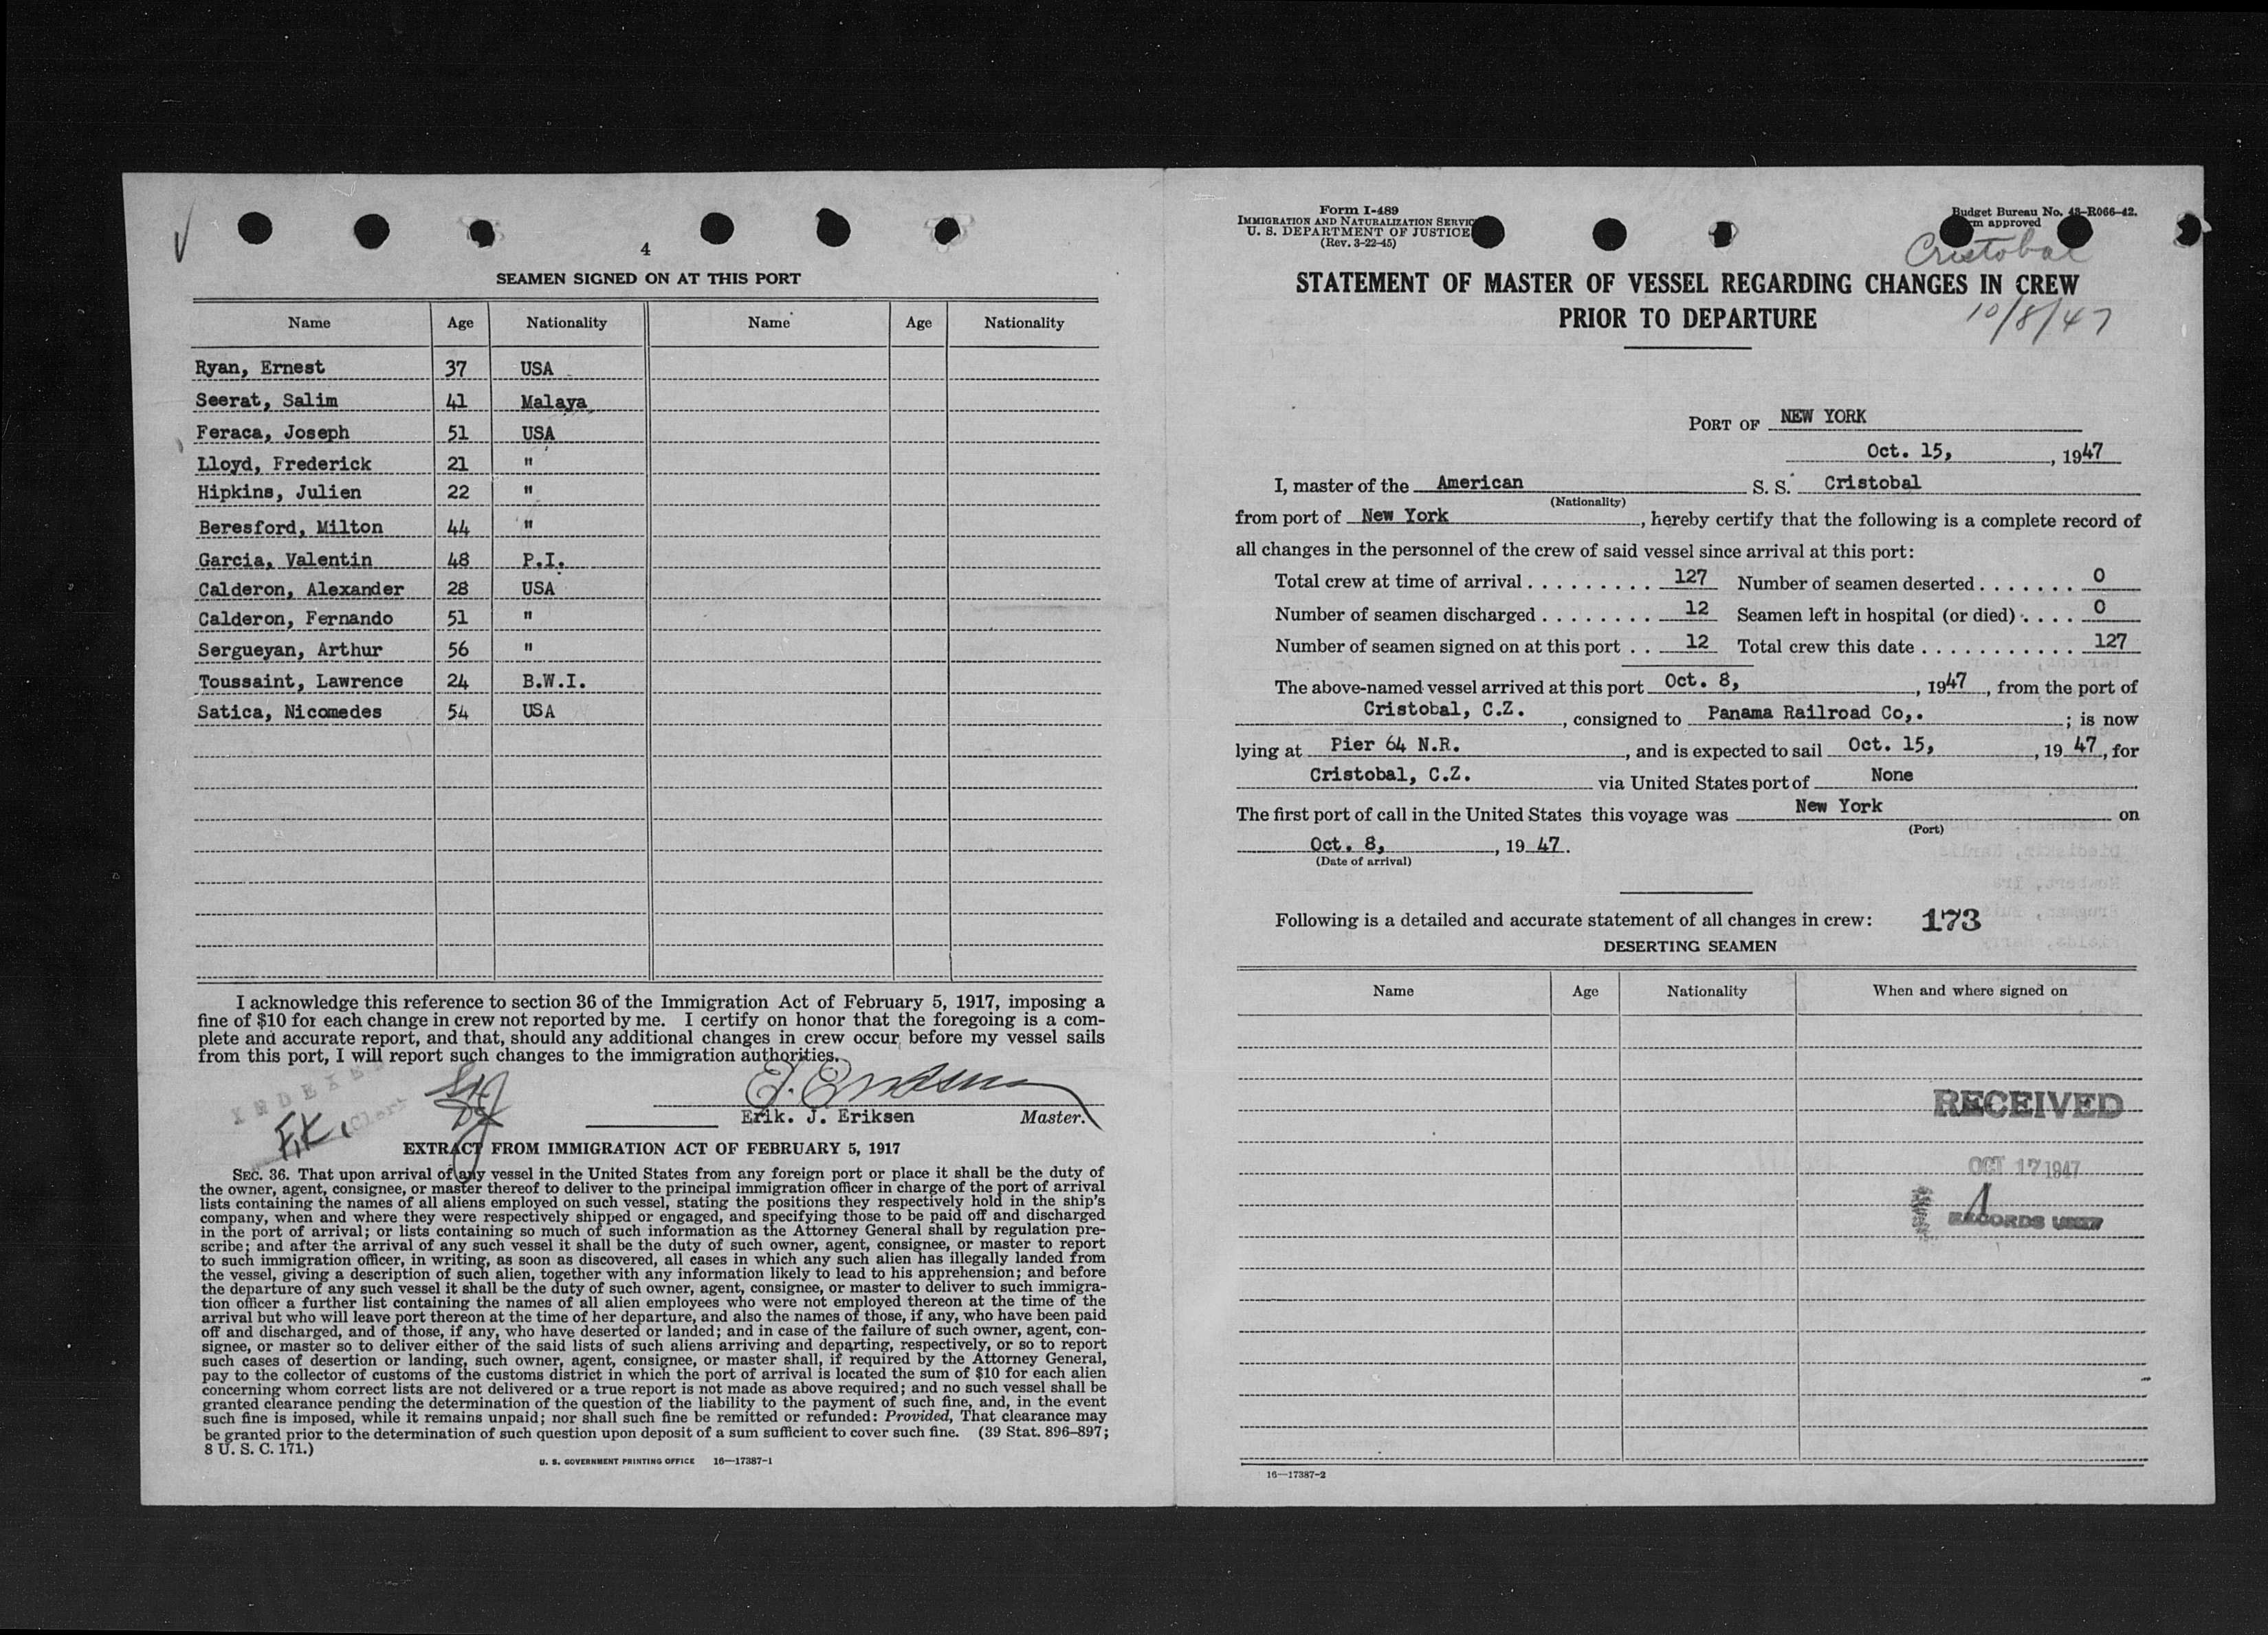 4
SEAMEN SIGNED ON AT THIS PORT
Name Age Nationality Name Age Nationality
Ryan, Ernest 37 USA
Seerat, Salim 41 Malaya
Feraca, Joseph 51 USA
Lloyd, Frederick 21 "
Hipkins, Julien 22 "
Beresford, Milton 44 "
Garcia, Valentin 48 P.I.
Calderon, Alexander 28 USA
Calderon, Fernando 51 "
Sergueyan, Arthur 56 "
Toussaint, Lawrence 24 B.W.I.
Satica, Nicomedes 54 USA
I acknowledge this reference to section 36 of the Immigration Act of February 5, 1917, imposing a
fine of $10 for each change in crew not reported by me. I certify on honor that the foregoing is a com-
plete and accurate report, and that, should any additional changes in crew occur before my vessel sails
from this port, I will report such changes to the immigration authorities.
E. Eriksen
Erik. J. Eriksen Master.
F.K.
EXTRACT FROM IMMIGRATION ACT OF FEBRUARY 5, 1917
SEC. 36. That upon arrival of any vessel in the United States from any foreign port or place it shall be the duty of
the owner, agent, consignee, or master thereof to deliver to the principal immigration officer in charge of the port of arrival
lists containing the names of all aliens employed on such vessel, stating the positions they respectively hold in the ship's
company, when and where they were respectively shipped or engaged, and specifying those to be paid off and discharged
in the port of arrival; or lists containing so much of such information as the Attorney General shall by regulation pre-
scribe; and after the arrival of any such vessel it shall be the duty of such owner, agent, consignee, or master to report
to such immigration officer, in writing, as soon as discovered, all cases in which any such alien has illegally landed from
the vessel, giving a description of such alien, together with any information likely to lead to his apprehension; and before
the departure of any such vessel it shall be the duty of such owner, agent, consignee, or master to deliver to such immigra-
tion officer a further list containing the names of all alien employees who were not employed thereon at the time of the
arrival but who will leave port thereon at the time of her departure, and also the names of those, if any, who have been paid
off and discharged, and of those, if any, who have deserted or landed; and in case of the failure of such owner, agent, con-
signee, or master so to deliver either of the said lists of such aliens arriving and departing, respectively, or so to report
such cases of desertion or landing, such owner, agent, consignee, or master shall, if required by the Attorney General,
pay to the collector of customs of the customs district in which the port of arrival is located the sum of $10 for each alien
concerning whom correct lists are not delivered or a true report is not made as above required; and no such vessel shall be
granted clearance pending the determination of the question of the liability to the payment of such fine, and, in the event
such fine is imposed, while it remains unpaid; nor shall such fine be remitted or refunded: Provided, That clearance may
be granted prior to the determination of such question upon deposit of a sum sufficient to cover such fine. (39 Stat. 896–897;
8 U. S. C. 171.)
U. S. GOVERNMENT PRINTING OFFICE 16—17387-1
Form I-489
IMMIGRATION AND NATURALIZATION SERVIC
U. S. DEPARTMENT OF JUSTICE
(Rev. 3-22-45)
Budget Bureau No. 43-R066-42.
m approved
Cristobal
10/8/47
STATEMENT OF MASTER OF VESSEL REGARDING CHANGES IN CREW
PRIOR TO DEPARTURE
PORT OF NEW YORK
Oct. 15, , 1947
I, master of the American S. S. Cristobal
(Nationality)
from port of New York , hereby certify that the following is a complete record of
all changes in the personnel of the crew of said vessel since arrival at this port:
Total crew at time of arrival . . . . . . . . . 127 Number of seamen deserted . . . . . . . 0
Number of seamen discharged . . . . . . . . 12 Seamen left in hospital (or died) . . . . 0
Number of seamen signed on at this port . . 12 Total crew this date . . . . . . . . . . . 127
The above-named vessel arrived at this port Oct. 8, , 1947 , from the port of
Cristobal, C.Z. , consigned to Panama Railroad Co,. ; is now
lying at Pier 64 N.R. , and is expected to sail Oct. 15, , 19 47 , for
Cristobal, C.Z. via United States port of None
The first port of call in the United States this voyage was New York on
(Port)
Oct. 8, , 19 47 .
(Date of arrival)
Following is a detailed and accurate statement of all changes in crew: 173
DESERTING SEAMEN
Name Age Nationality When and where signed on
RECEIVED
OCT 17 1947
RECORDS UNIT
16—17387-2